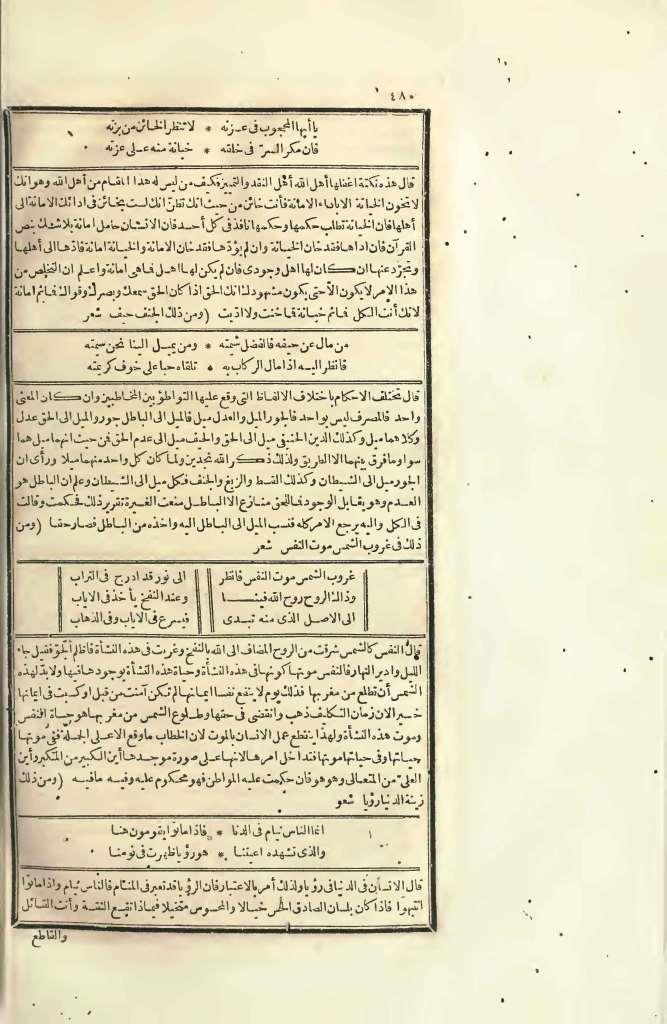 ٤٨٠
يا أيها المحجوب في عزته * لا تنظر الخائن من بزته
فان مكر الله في خلقه * خيانة منه على عزته
قال هذه نكتة اغفلها أهل الله أهل النقد والتمييز فكيف من ليس له هذا المقام من أهل الله وهو انك
لا تخون الخيانة الا باداء الامانة فأنت خائن من حيث انك تظن انك لست بخائن في ادائك الامانة الى
أهلها فان الخيانة تطلب حكمها وحكمها نافذ في كل أحد فان الانسان حامل امانة بلا شك بنص
القرآن فان اداها فقد خان الخيانة وان لم يؤدها فقد خان الامانة والخيانة امانة فادّها الى أهلها
وتجرّد عنها ان كان لها اهل وجودي فان لم يكن لها اهل فما هي امانة واعلم ان التخلص من
هذا الامر لا يكون الا حتى يكون مشهودك انك الحق اذا كان الحق سمعك وبصرك وقواك فما ثم امانة
لانك أنت الكل فما ثم خيانة فما خنت ولا اديت (ومن ذلك الجنف حيف شعر
من مال عن حيفه فالفضل شيمته * ومن يميل الينا نحن سيمته
فانظر اليه اذا مال الركاب به * تلقاه حبا على خوف كريمته
قال تختلف الاحكام باختلاف الالفاظ التي وقع عليها التواطؤ بين المخاطبين وان كان المعنى
واحد فالمصرف ليس بواحد فالجور الميل والعدل ميل فالميل الى الباطل جور والميل الى الحق عدل
وكلاهما ميل وكذلك الدين الحنيفي ميل الى الحق والحيف ميل الى عدم الحق فمن حيث انهما ميل هما
سواء وما فرق بينهما الا الطريق ولذلك ذكر الله نجدين ولما كان كل واحد منهما ميلا ورأى ان
الجور ميل الى الشيطان وكذلك القسط والزيغ والجنف فكل ميل الى الشيطان وعلم ان الباطل هو
العدم وهو يقابل الوجود فما للحق منازع الا الباطل منعت الغيرة تقرير ذلك فحكمت وقالت
في الكل واليه يرجع الامر كله فنسب الميل الى الباطل اليه واخذه من الباطل فصار حقا (ومن
ذلك في غروب الشمس موت النفس شعر
غروب الشمس موت النفس فانظر الى نور قد ادرج في التراب
وذاك الروح روح الله فينا وعند النفخ يأخذ في الاياب
الى الاصل الذي منه تبدى فيسرع في الاياب وفي الذهاب
قال النفس كالشمس شرقت من الروح المضاف الى الله بالنفخ وغربت في هذه النشأة فاظلم الجو فقيل جاء
الليل وادبر النهار فالنفس موتها كونها في هذه النشأة وحياة هذه النشأة بوجودها فيها ولا بد لهذه
الشمس أن تطلع من مغربها فذلك يوم لا ينفع نفسا ايمانها لم تكن آمنت من قبل أو كسبت في ايمانها
خيرا لان زمان التكليف ذهب وانقضى في حقها وطلوع الشمس من مغربها هو حياة النفس
وموت هذه النشأة ولهذا ينقطع عمل الانسان بالموت لان الخطاب ما وقع الا على الجملة ففي موتها
حياتها وفي حياتها موتها فتداخل امرها لانها على صورة موجدها أين الكبير من المتكبر وأين
العليّ من المتعالي وهو هو فان حكمت عليه المواطن فهو محكوم عليه وفيه مافيه (ومن ذلك
زينة الدنيا رؤيا شعر
انما الناس نيام في الدنا * فاذا ماتوا يقومون هنا
والذي تشهده اعيننا * هو رؤيا ظهرت في نومنا
قال الانسان في الدنيا في رؤيا ولذلك أمر بالاعتبار فان الرؤيا قد تعبر في المنام فالناس نيام واذا ماتوا
انتبهوا فاذا كان بلسان الصادق الحس خيالا والمحسوس متخيلا فبماذا تقع الثقة وأنت القائل
والقاطع